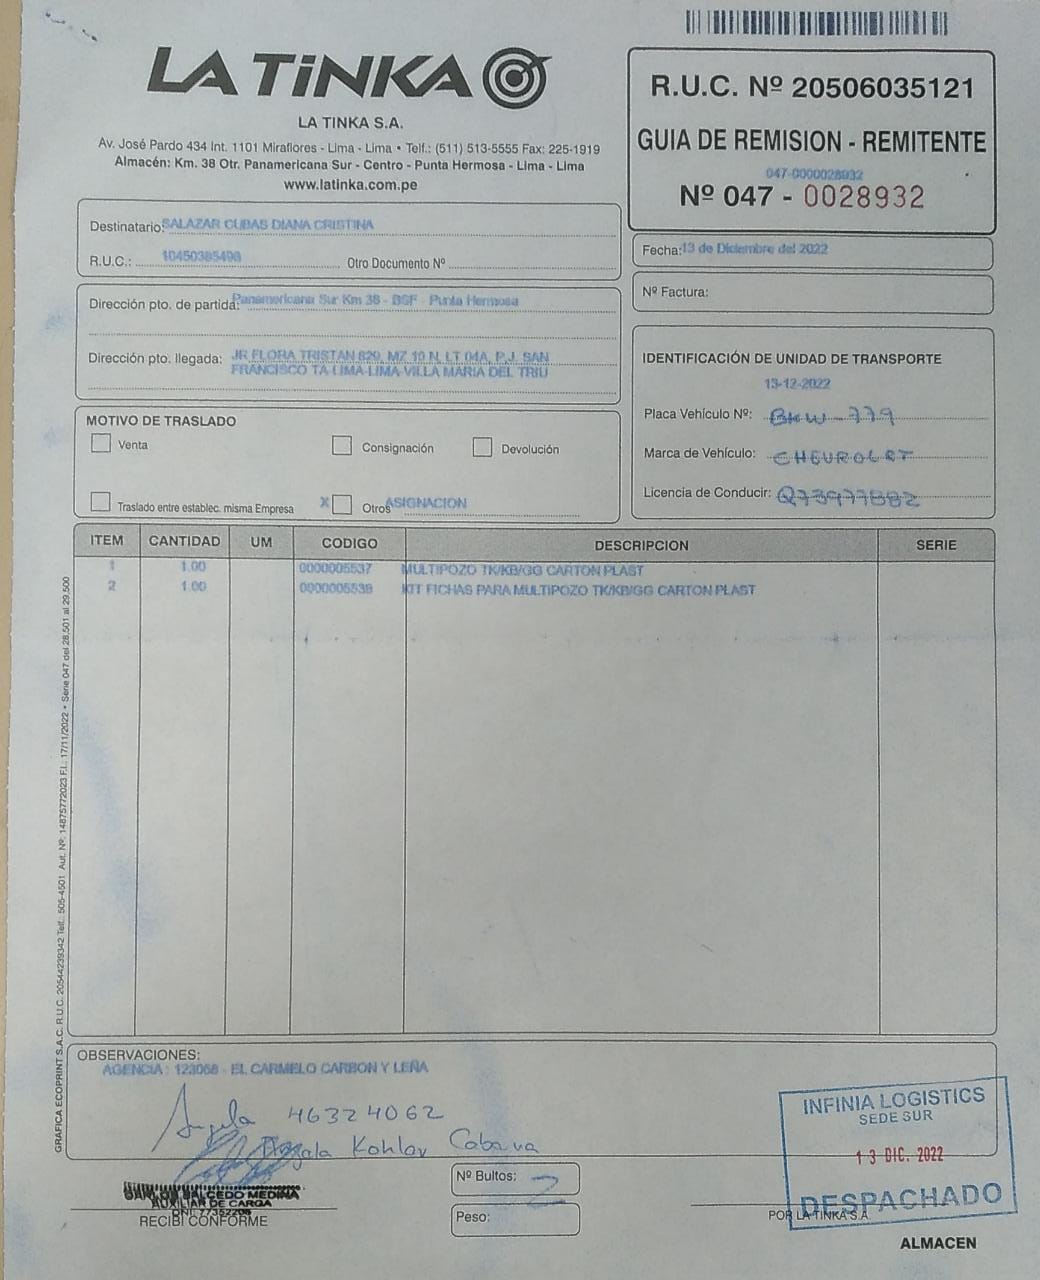 LA TiNKA
LA TINKA S.A.
Av. José Pardo 434 Int. 1101 Miraflores - Lima - Lima • Telf.: (511) 513-5555 Fax: 225-1919
Almacén: Km. 38 Otr. Panamericana Sur - Centro - Punta Hermosa - Lima - Lima
www.latinka.com.pe
R.U.C. Nº 20506035121
GUIA DE REMISION - REMITENTE
047-0000028932
Nº 047 - 0028932
Destinatario: SALAZAR CUBAS DIANA CRISTINA
R.U.C.: 10450385498 Otro Documento Nº
Fecha: 13 de Diciembre del 2022
Nº Factura:
Dirección pto. de partida: Panamericana Sur Km 38 - BSF - Punta Hermosa
Dirección pto. llegada: JR FLORA TRISTAN 829, MZ 10 N, LT 04A, P.J. SAN
FRANCISCO TA-LIMA-LIMA-VILLA MARIA DEL TRIU
IDENTIFICACIÓN DE UNIDAD DE TRANSPORTE
13-12-2022
Placa Vehículo Nº: BKW-779
Marca de Vehículo: CHEVROLET
Licencia de Conducir: Q73977882
MOTIVO DE TRASLADO
Venta Consignación Devolución
Traslado entre establec. misma Empresa X Otros ASIGNACION
ITEM CANTIDAD UM CODIGO DESCRIPCION SERIE
1 1.00 0000005537 MULTIPOZO TK/KB/GG CARTON PLAST
2 1.00 0000005538 KIT FICHAS PARA MULTIPOZO TK/KB/GG CARTON PLAST
GRAFICA ECOPRINT S.A.C. R.U.C. 20544239342 Telf.: 505-4501 Aut. Nº. 14875772023 F.I.: 17/11/2022 • Serie 047 del 28,501 al 29,500
OBSERVACIONES:
AGENCIA : 123068 - EL CARMELO CARBON Y LEÑA
Angela 46324062
Angela Kohler Cabana
CARLOS SALCEDO MEDINA
AUXILIAR DE CARGA
DNI: 77352206
RECIBI CONFORME
Nº Bultos: 2
Peso:
INFINIA LOGISTICS
SEDE SUR
13 DIC. 2022
DESPACHADO
POR LA TINKA S.A.
ALMACEN